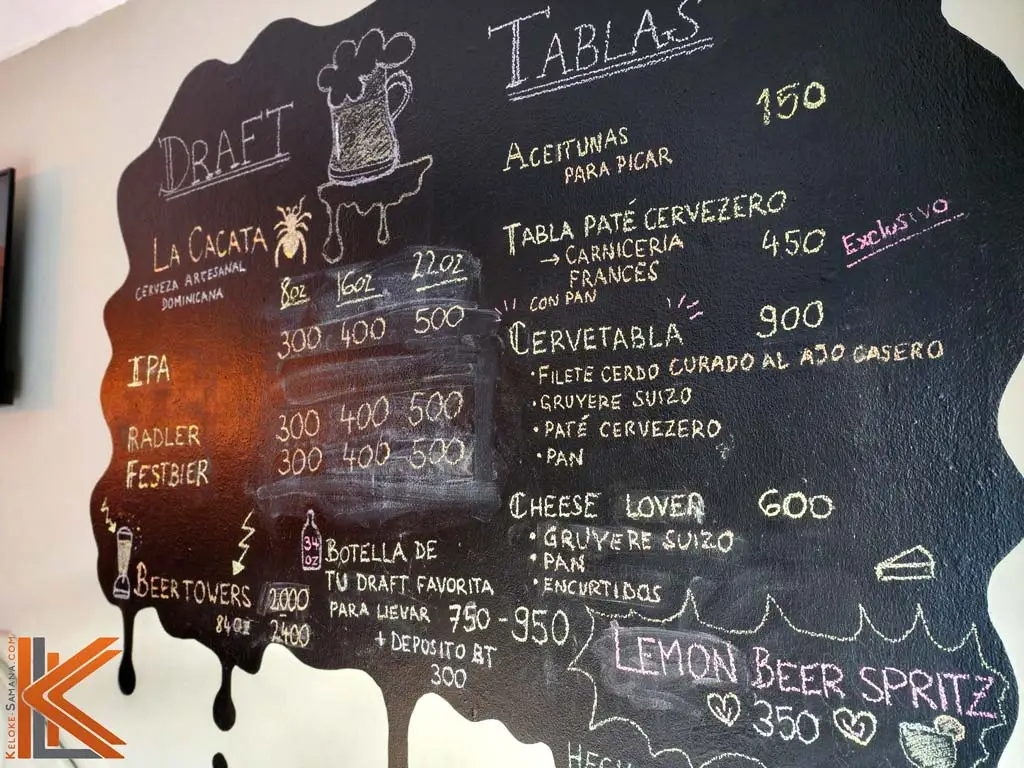 DRAFT
LA CACATA
CERVEZA ARTESANAL
DOMINICANA
8oz 16oz 22oz
IPA 300 400 500
RADLER 300 400 500
FESTBIER 300 400 500
BEER TOWERS 2000
84oz 2400
34
oz
BOTELLA DE
TU DRAFT FAVORITA
PARA LLEVAR 750 - 950
+ DEPOSITO BT
300
TABLAS
150
ACEITUNAS
PARA PICAR
TABLA PATÉ CERVEZERO
→ CARNICERIA 450 Exclusivo
FRANCÉS
CON PAN
CERVETABLA 900
• FILETE CERDO CURADO AL AJO CASERO
• GRUYERE SUIZO
• PATÉ CERVEZERO
• PAN
CHEESE LOVER 600
• GRUYERE SUIZO
• PAN
• ENCURTIDOS
LEMON BEER SPRITZ
350
KELOKE-SAMANA.COM